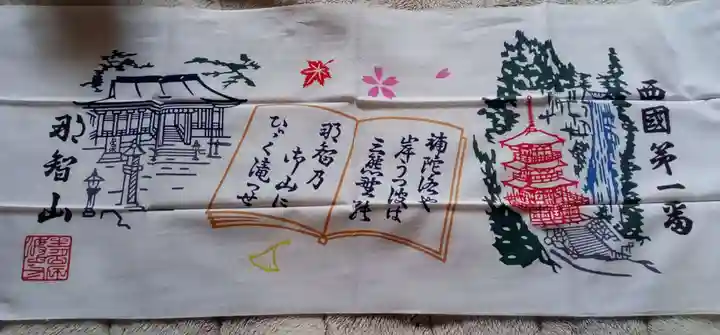 西國第一番
補陀洛や
岸うつ波は
三熊野の
那智乃
お山に
ひゞく滝つせ
那智山